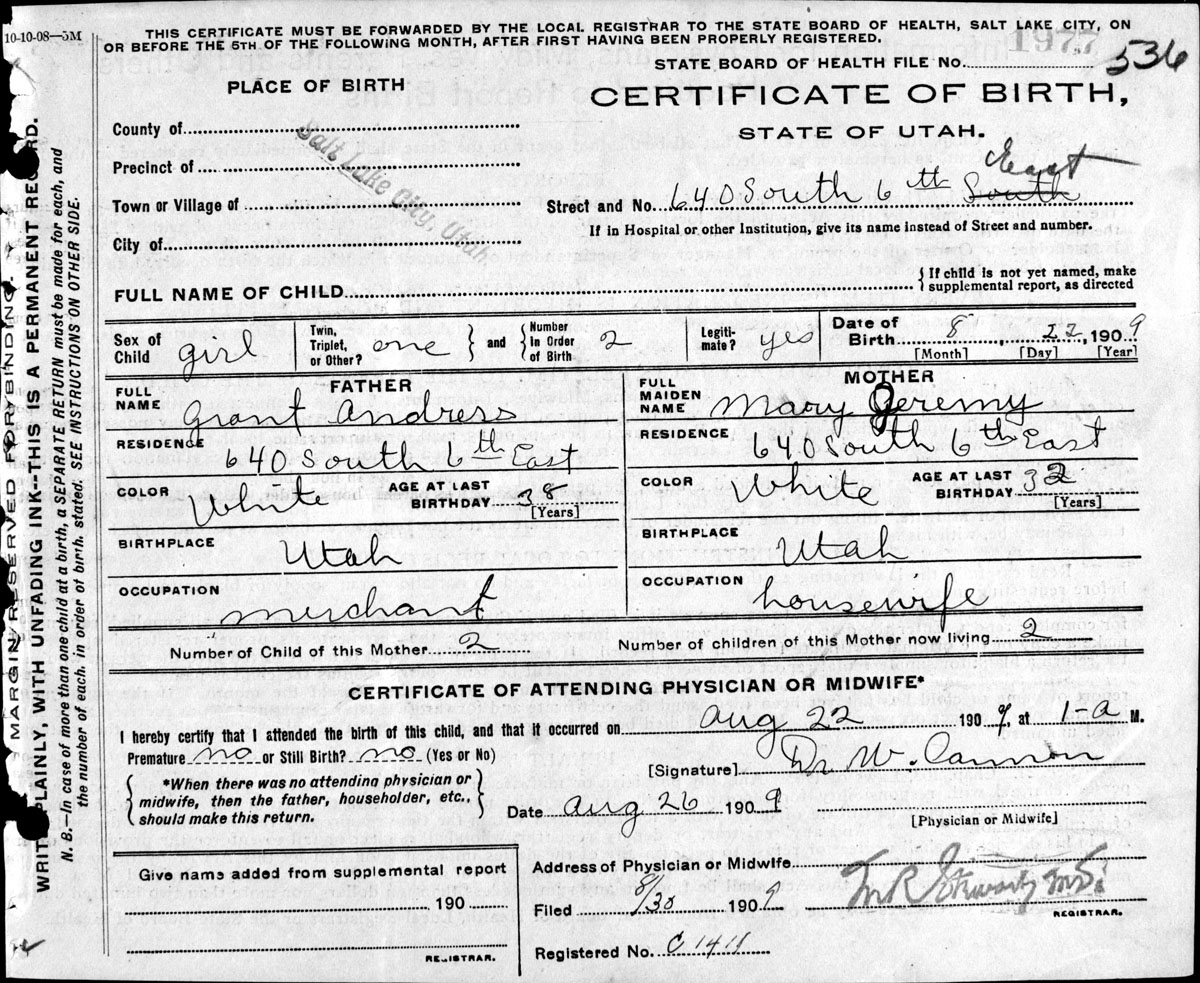 10-10-08—5M
THIS CERTIFICATE MUST BE FORWARDED BY THE LOCAL REGISTRAR TO THE STATE BOARD OF HEALTH, SALT LAKE CITY, ON
OR BEFORE THE 5TH OF THE FOLLOWING MONTH, AFTER FIRST HAVING BEEN PROPERLY REGISTERED.
1977
536
STATE BOARD OF HEALTH FILE No.
PLACE OF BIRTH
CERTIFICATE OF BIRTH,
STATE OF UTAH.
County of
Precinct of
Town or Village of
City of
Salt Lake City, Utah
East
Street and No. 640 South 6th South
If in Hospital or other Institution, give its name instead of Street and number.
FULL NAME OF CHILD
{ If child is not yet named, make
supplemental report, as directed
Sex of Child girl
Twin, Triplet, or Other? one } and { Number in Order of Birth 2
Legiti-mate? yes
Date of Birth 8, 22, 1909
[Month] [Day] [Year]
FATHER
FULL NAME Grant Andress
RESIDENCE 640 South 6th East
COLOR White AGE AT LAST BIRTHDAY 38
[Years]
BIRTHPLACE Utah
OCCUPATION merchant
MOTHER
FULL MAIDEN NAME Mary Jeremy
RESIDENCE 640 South 6th East
COLOR White AGE AT LAST BIRTHDAY 32
[Years]
BIRTHPLACE Utah
OCCUPATION housewife
Number of Child of this Mother 2 Number of children of this Mother now living 2
CERTIFICATE OF ATTENDING PHYSICIAN OR MIDWIFE*
I hereby certify that I attended the birth of this child, and that it occurred on Aug 22 1909, at 1-a M.
Premature no or Still Birth? no (Yes or No)
[Signature] Dr. W. Cannon
{ *When there was no attending physician or
midwife, then the father, householder, etc.,
should make this return. }
Date Aug 26 1909
[Physician or Midwife]
Give name added from supplemental report
190
REGISTRAR.
Address of Physician or Midwife
Filed 8/30 1909
REGISTRAR.
Registered No. C 1411
MARGIN RESERVED FOR BINDING.
WRITE PLAINLY, WITH UNFADING INK--THIS IS A PERMANENT RECORD.
N. B.—In case of more than one child at a birth, a SEPARATE RETURN must be made for each, and
the number of each, in order of birth, stated. SEE INSTRUCTIONS ON OTHER SIDE.